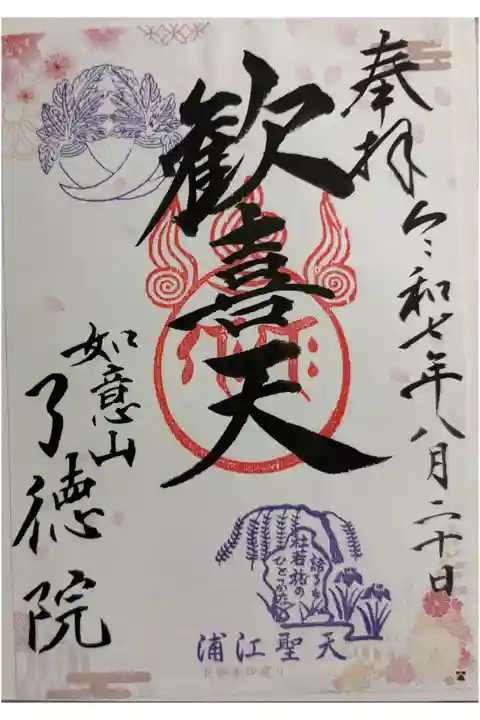 奉拝
令和七年八月二十日
歓喜天
如意山
了徳院
語るも
杜若旅の
ひとつかな
浦江聖天